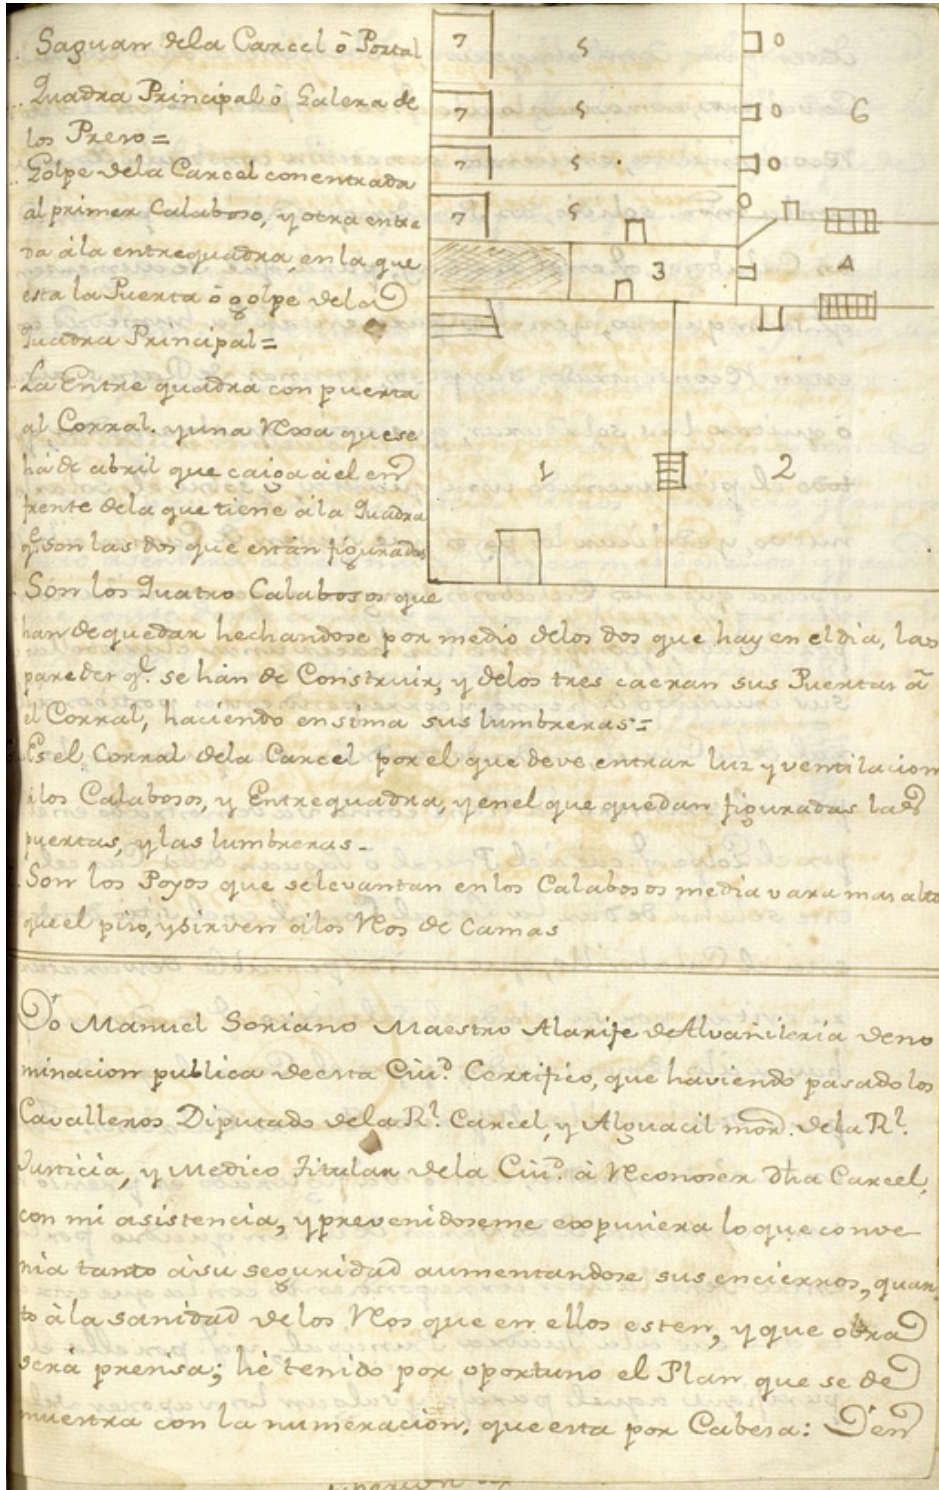 Saguan dela Carcel ô Portal
Quadra Principal ô Galera de
los Preso=
Golpe dela Carcel con entrada
al primer Calaboso, y otra entra
da âla entrequadra, en la que
esta la Puerta ô golpe dela
Quadra Principal=
La Entre quadra con puerta
al Corral. y una Rexa que se
há de abril que caiga â el en
frente dela que tiene âla Quadra
q.e son las dos que están figuradas
Són los Quatro Calabosos que
han de quedar hechandose por medio delos dos que hay en el dia, las
paredes q.e se hán de Construir, y delos tres caeran sus Puertas â
el Corral, haciendo ensima sus lumbreras=
Es el Corral dela Carcel por el que deve entrar luz y ventilacion
âlos Calabosos, y Entrequadra, y en el que quedan figuradas las
puertas, y las lumbreras.
Son los Poyos que se levantan en los Calabosos media vara mas alto
que el piso, y sirven âlos Reos de Camas
7 5 0
7 5 0 6
7 5 0
7 5 0
3 4
1 2
Yo Manuel Soriano Maestro Alarife de Alvañileria de no
minacion publica de esta Ciu.d Certifico, que haviendo pasado los
Cavalleros Diputado dela R.l Carcel, y Alguacil mor. dela R.l
Justicia, y Medico Titular dela Ciu.d â Reconoser dha Carcel,
con mi asistencia, y prevenidoseme expusiera lo que conve
nia tanto âsu seguridad aumentandose sus encierros, quan
to âla sanidad delos Reos que en ellos esten, y que obra
será presisa; hé tenido por oportuno el Plan que se de
muestra con la numeracion, que esta por Cabesa: Den